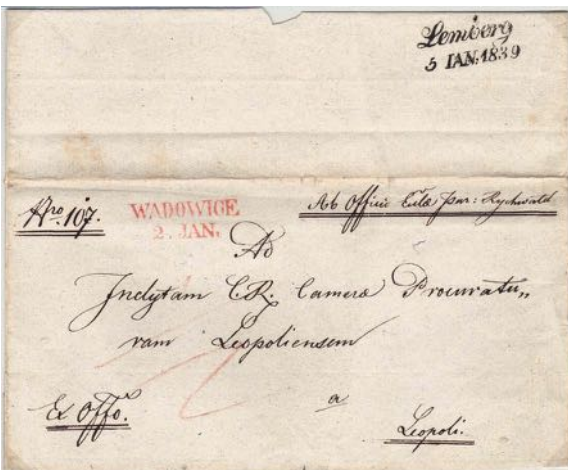 Lemberg
5 IAN: 1839
Nro. 107.
WADOWICE
2. JAN.
Ab Officio Eccłæ par: Rychwald
Ad
Inclytam C.R. Cameræ Procuratu„
ram Leopoliensem
a
Ex Offo.
Leopoli.